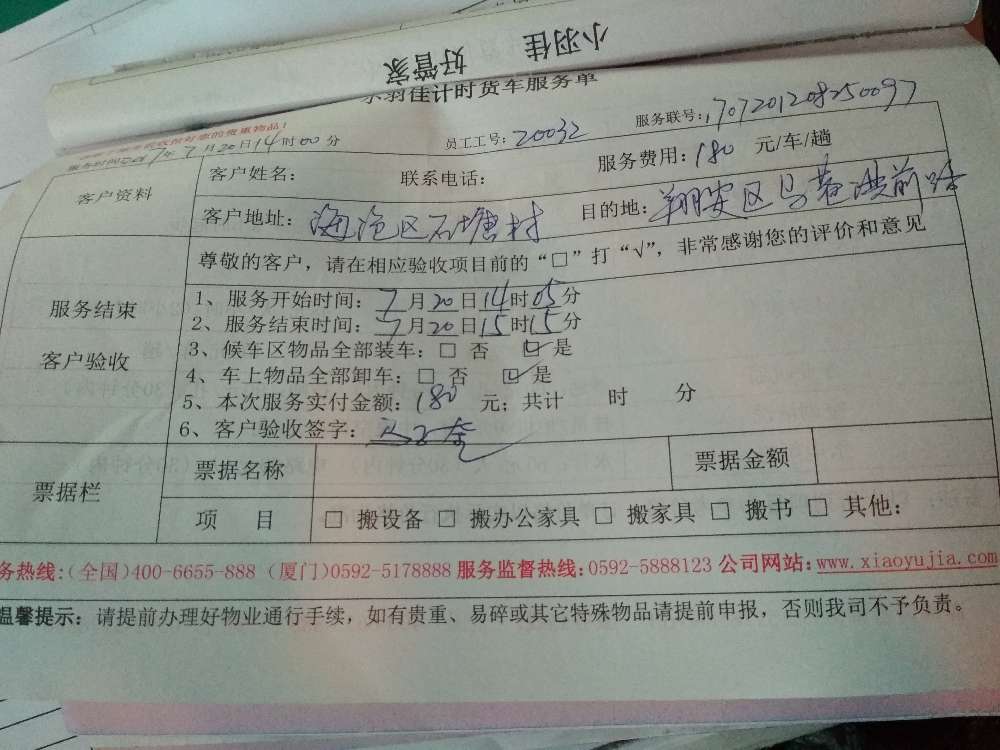 小羽佳 好管家
小羽佳计时货车服务单
的贵重物品！
服务时间2017年7月20日14时00分 员工工号：20032 服务联号：1707201208250097
客户资料
客户姓名： 联系电话： 服务费用：180 元/车/趟
客户地址：海沧区石塘村 目的地：翔安区马巷洪前
服务结束
客户验收
尊敬的客户，请在相应验收项目前的“□”打“√”，非常感谢您的评价和意见
1、服务开始时间：7月20日14时05分
2、服务结束时间：7月20日15时15分
3、候车区物品全部装车：□ 否 ☑ 是
4、车上物品全部卸车：□ 否 ☑ 是
5、本次服务实付金额：180 元；共计 时 分
6、客户验收签字：
票据栏
票据名称 票据金额
项 目 □ 搬设备 □ 搬办公家具 □ 搬家具 □ 搬书 □ 其他：
务热线：（全国）400-6655-888（厦门）0592-5178888 服务监督热线：0592-5888123 公司网站：www.xiaoyujia.com
温馨提示：请提前办理好物业通行手续，如有贵重、易碎或其它特殊物品请提前申报，否则我司不予负责。